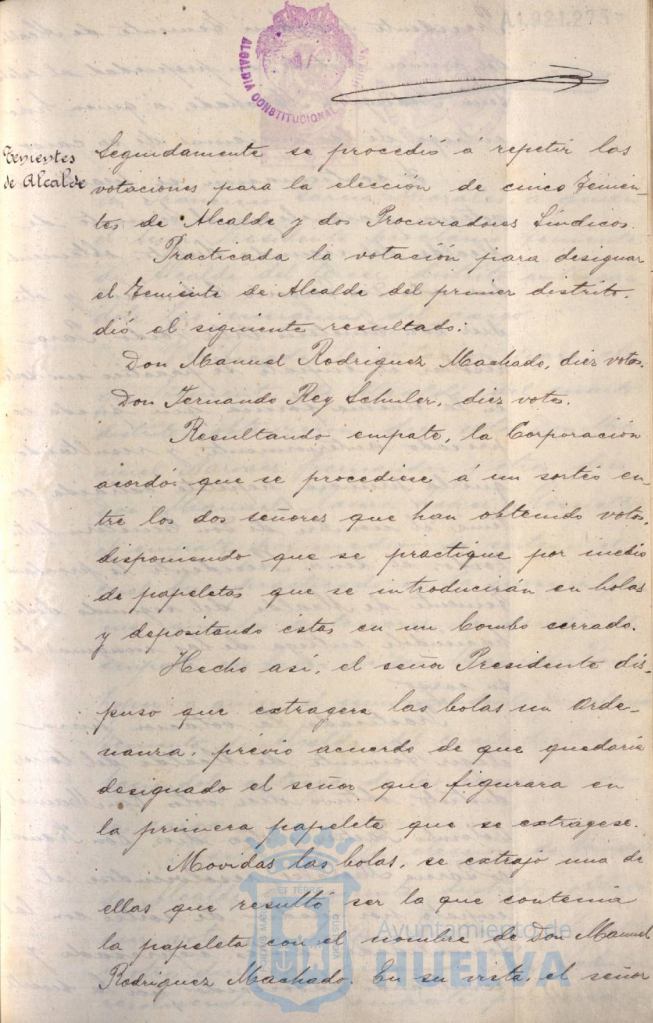 A1.921.275
ALCALDIA CONSTITUCIONAL
Tenientes
de Alcalde
Segundamente se procedió á repetir las
votaciones para la elección de cinco Tenien-
tes de Alcalde y dos Procuradores Síndicos.
Practicada la votación para designar
el Teniente de Alcalde del primer distrito,
dió el siguiente resultado:
Don Manuel Rodriguez Machado, diez votos.
Don Fernando Rey Schuler, diez votos.
Resultando empate, la Corporación
acordó que se procediese á un sorteo en-
tre los dos señores que han obtenido votos,
disponiendo que se practique por medio
de papeletas que se introducirán en bolas
y depositando éstas en un bombo cerrado.
Hecho así, el señor Presidente dis-
puso que extragera las bolas un Orde-
nanza, previo acuerdo de que quedaría
designado el señor que figurara en
la primera papeleta que se extragese.
Movidas las bolas, se extrajo una de
ellas que resultó ser la que contenía
la papeleta con el nombre de Don Manuel
Rodriguez Machado. En su vista, el señor
Ayuntamiento de
HUELVA